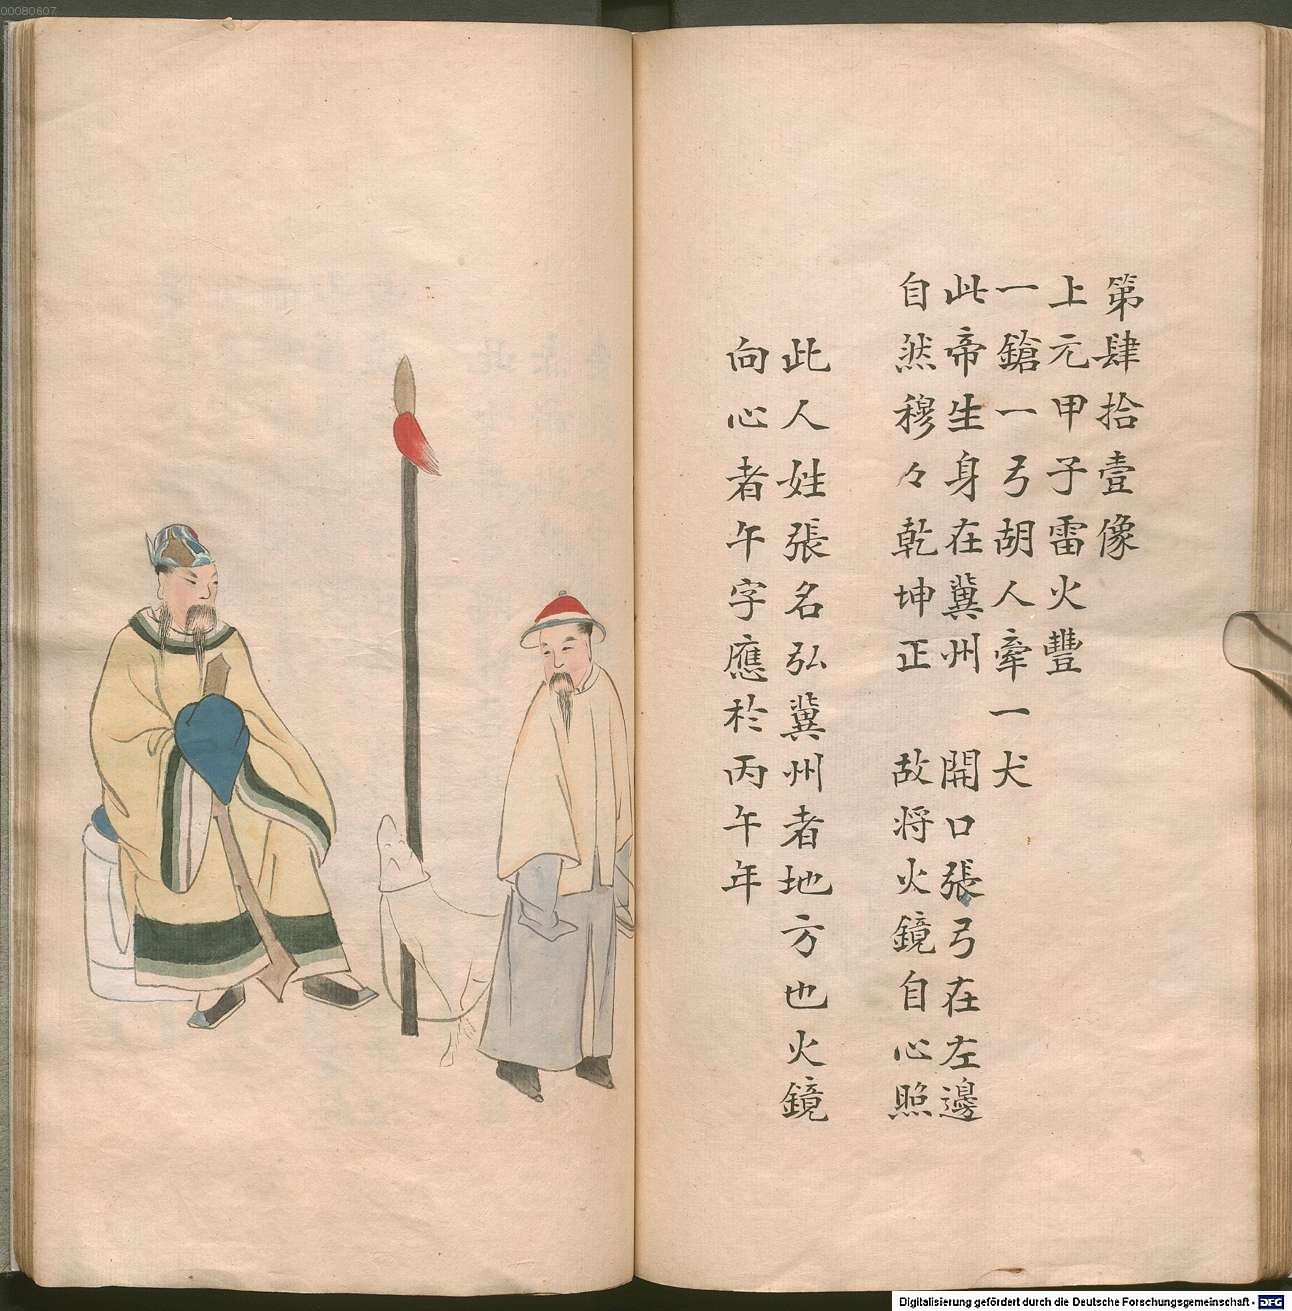 00080607
第肆拾壹像
上元甲子雷火豐
一鎗一弓胡人牽一犬
此帝生身在冀州　開口張弓在左邊
自然穆々乾坤正　故將火鏡自心照
此人姓張名弘冀州者地方也火鏡
向心者午字應於丙午年
Digitalisierung gefördert durch die Deutsche Forschungsgemeinschaft - DFG